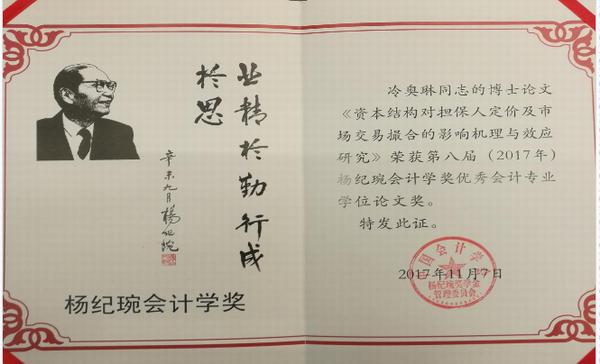 业精于勤行成
于思
辛未九月 杨纪琬
杨纪琬会计学奖
冷奥琳同志的博士论文
《资本结构对担保人定价及市
场交易撮合的影响机理与效应
研究》荣获第八届(2017年)
杨纪琬会计学奖优秀会计专业
学位论文奖。
特发此证。
中国会计学会
杨纪琬奖学金
管理委员会
2017年11月7日